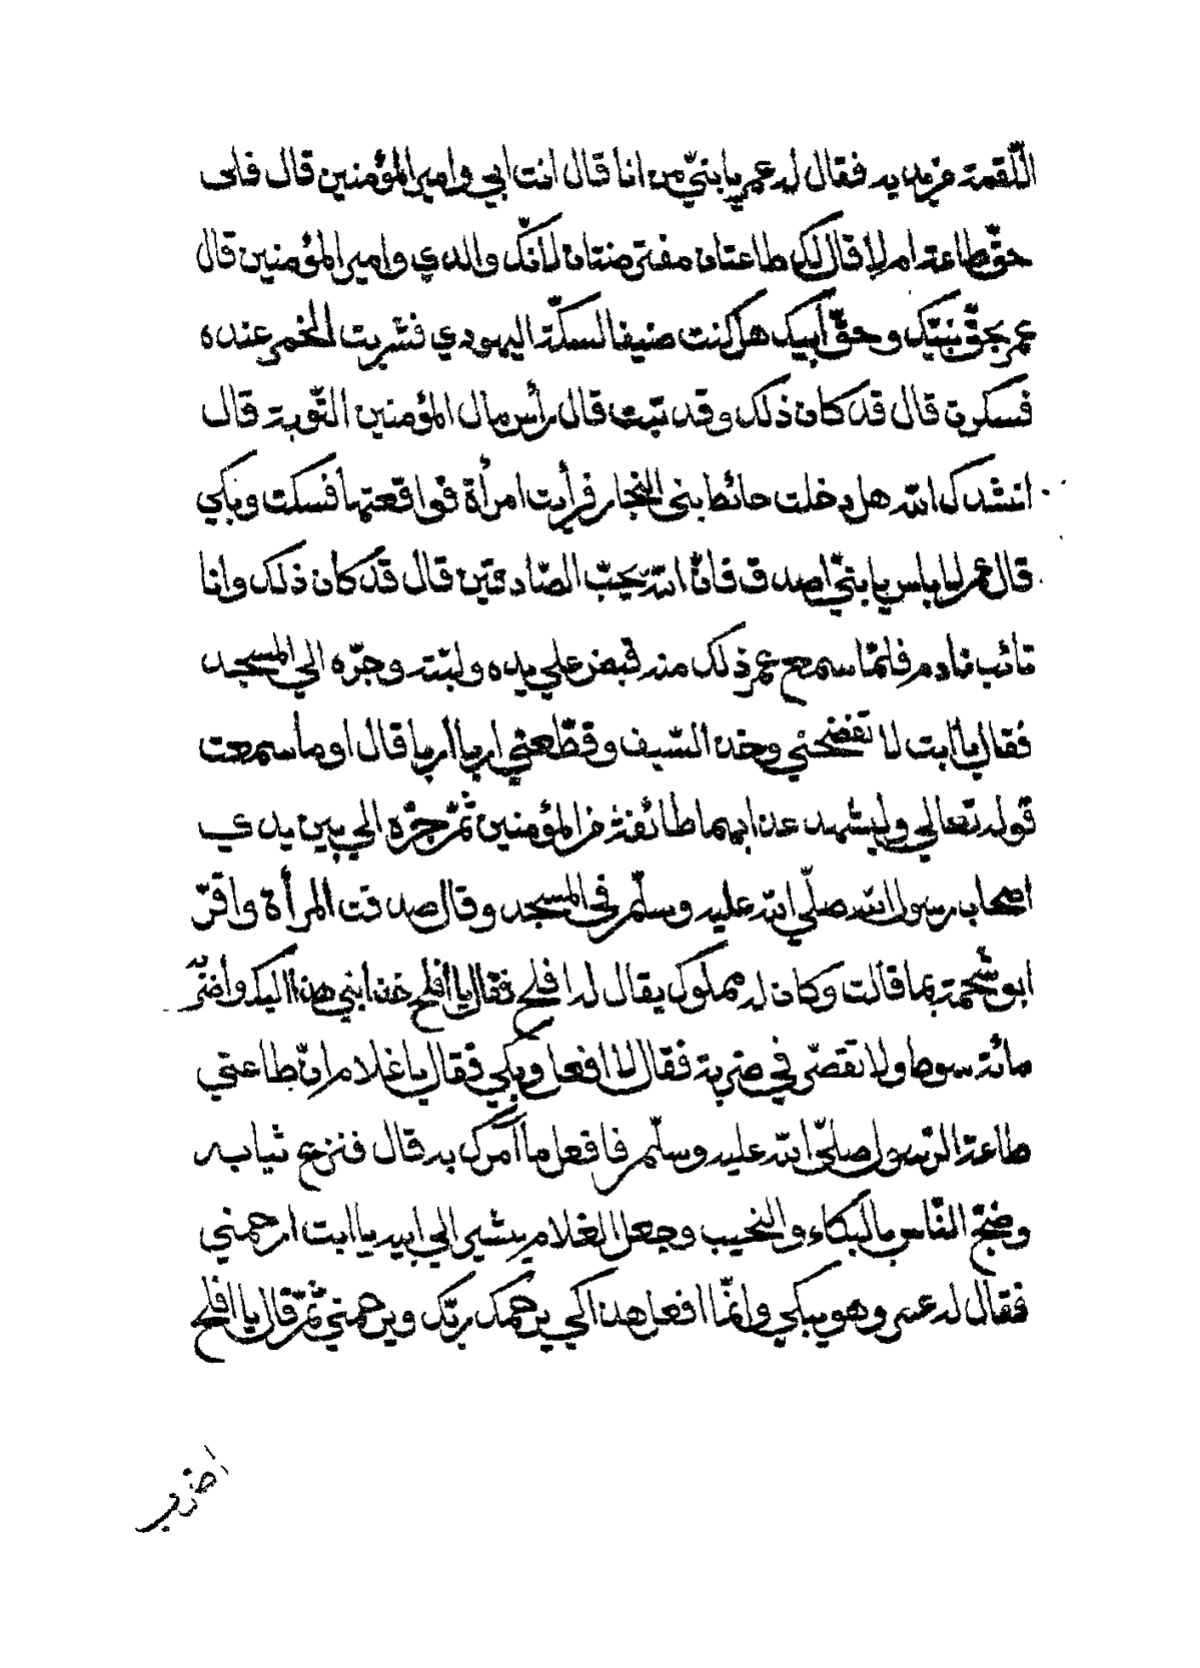 اللّقمة من يده فقال له عمر يا بنيّ من انا قال انت ابي وامير المؤمنين قال فلى
حقّ طاعة ام لا قال لك طاعتان مفترضتان لانّك والدي وامير المؤمنين قال
عمر بحقّ نبيّك وحقّ أبيك هل كنت ضيفا لسكّة اليهودي فشربت الخمر عنده
فسكرت قال قد كان ذلك وقد تبت قال رأس مال المؤمنين التّوبة قال
انشدك الله هل دخلت حائط بنى النجار فرأيت امرأة فواقعتها فسكت وبكي
قال عمر لا باس يا بنيّ اصدق فانّ الله يحبّ الصّادقين قال قد كان ذلك وانا
تائب نادم فلمّا سمع عمر ذلك منه قبض علي يده ولبّته وجرّه الي المسجد
فقال يا أبت لا تفضحني وخذ السّيف وقطّعني اربا أربا قال اوما سمعت
قوله تعالي وليشهد عذابهما طائفة من المؤمنين ثمّ جرّه الي بين يدي
اصحاب رسول الله صلّي الله عليه وسلّم في المسجد وقال صدقت المرأة واقرّ
ابو شحمة بما قالت وكان له مملوك يقال له افلح فقال يا أفلح خذ ابني هذا اليك واضربه
مائة سوط ولا تقصّر في ضربة فقال لا افعل وبكي فقال يا غلام انّ طاعتي
طاعة الرّسول صلّي الله عليه وسلّم فافعل ما آمرك به قال فنزع ثيابه
وضجّ النّاس بالبكاء والنحيب وجعل الغلام يشير الي ابيه يا ابت ارحمني
فقال له عمر وهو يبكي وانّما افعل هذا كي يرحمك ربّك ويرحمني ثمّ قال يا افلح
اضرب